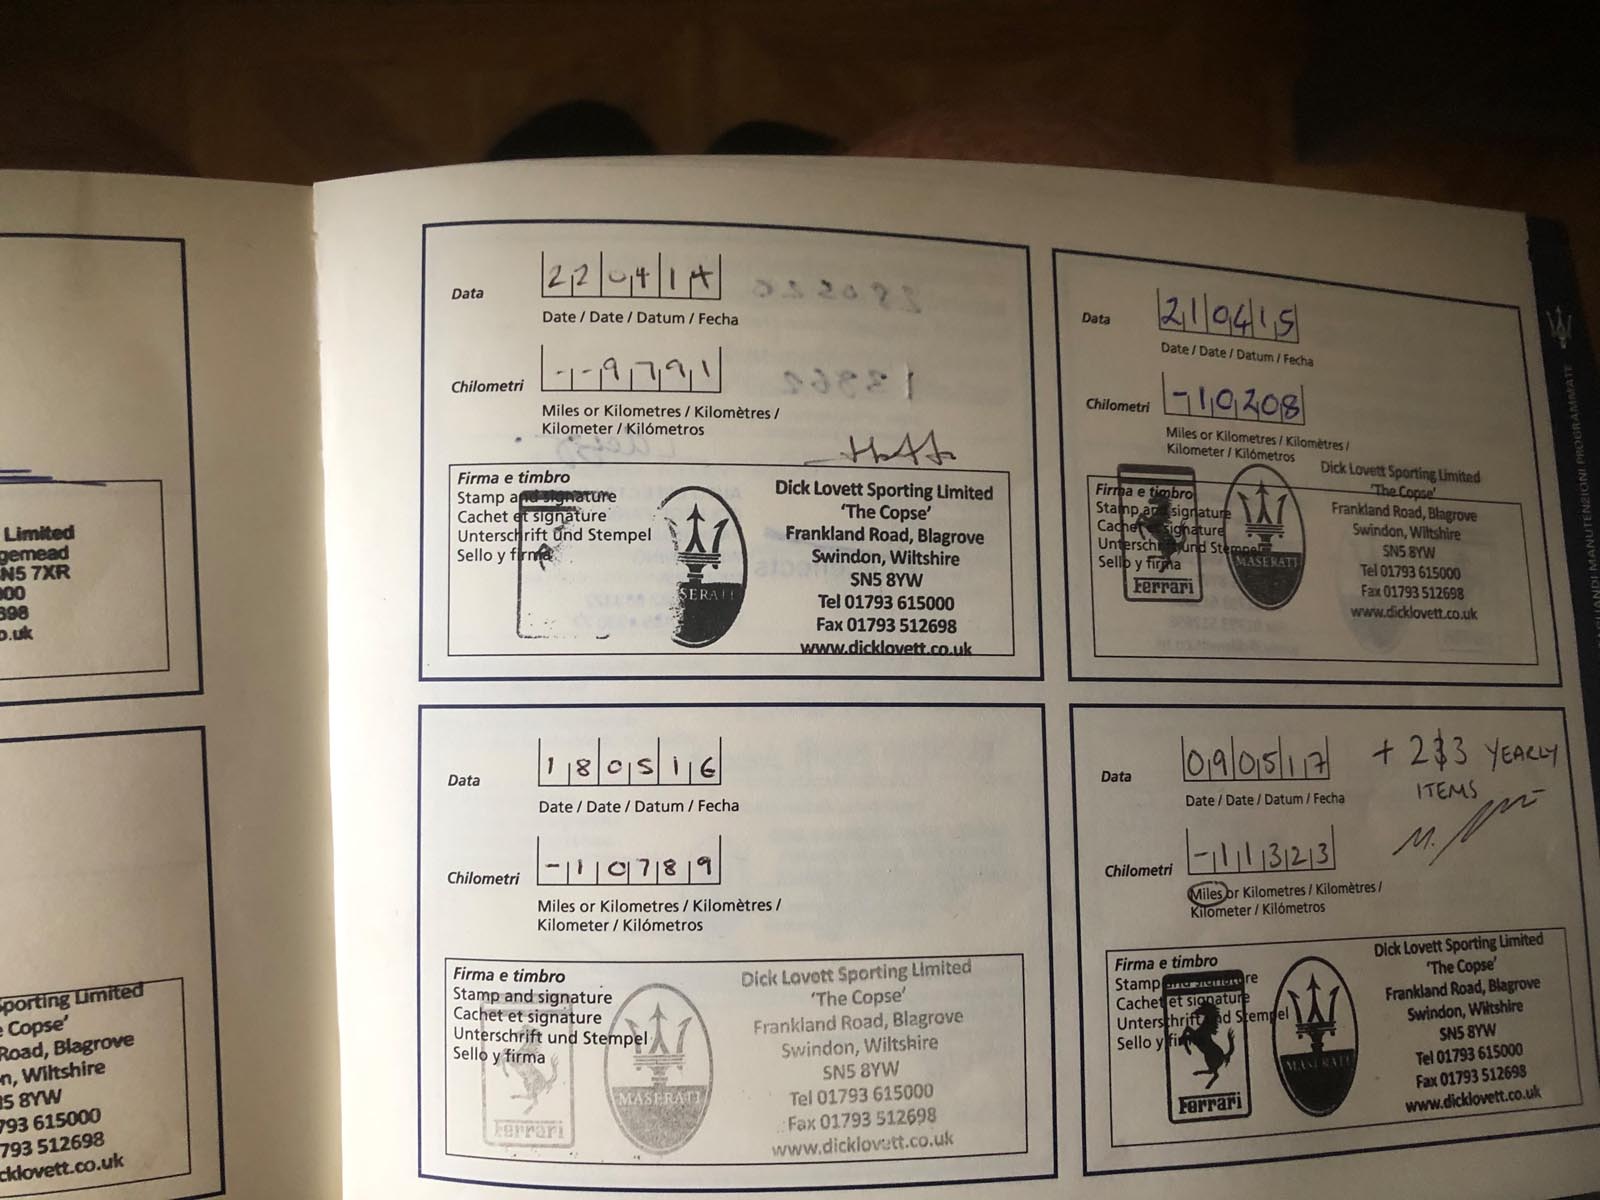 Limited
gemead
N5 7XR
000
698
o.uk
porting Limited
e Copse'
Road, Blagrove
n, Wiltshire
N5 8YW
793 615000
793 512698
cklovett.co.uk
Data 220414
Date / Date / Datum / Fecha
Chilometri --9791
Miles or Kilometres / Kilomètres /
Kilometer / Kilómetros
Firma e timbro
Stamp and signature
Cachet et signature
Unterschrift und Stempel
Sello y firma
SERATI
Dick Lovett Sporting Limited
'The Copse'
Frankland Road, Blagrove
Swindon, Wiltshire
SN5 8YW
Tel 01793 615000
Fax 01793 512698
www.dicklovett.co.uk
Data 210415
Date / Date / Datum / Fecha
Chilometri -10208
Miles or Kilometres / Kilomètres /
Kilometer / Kilómetros
Firma e timbro
Stamp and signature
Cachet et signature
Unterschrift und Stempel
Sello y firma
Ferrari
MASERATI
Dick Lovett Sporting Limited
'The Copse'
Frankland Road, Blagrove
Swindon, Wiltshire
SN5 8YW
Tel 01793 615000
Fax 01793 512698
www.dicklovett.co.uk
Data 180516
Date / Date / Datum / Fecha
Chilometri -10789
Miles or Kilometres / Kilomètres /
Kilometer / Kilómetros
Firma e timbro
Stamp and signature
Cachet et signature
Unterschrift und Stempel
Sello y firma
Ferrari
MASERATI
Dick Lovett Sporting Limited
'The Copse'
Frankland Road, Blagrove
Swindon, Wiltshire
SN5 8YW
Tel 01793 615000
Fax 01793 512698
www.dicklovett.co.uk
Data 090517
+ 2&3 YEARLY
ITEMS
Date / Date / Datum / Fecha
Chilometri -11323
Miles or Kilometres / Kilomètres /
Kilometer / Kilómetros
Firma e timbro
Stamp and signature
Cachet et signature
Unterschrift und Stempel
Sello y firma
Ferrari
MASERATI
Dick Lovett Sporting Limited
'The Copse'
Frankland Road, Blagrove
Swindon, Wiltshire
SN5 8YW
Tel 01793 615000
Fax 01793 512698
www.dicklovett.co.uk
MANUTENZIONI PROGRAMMATE